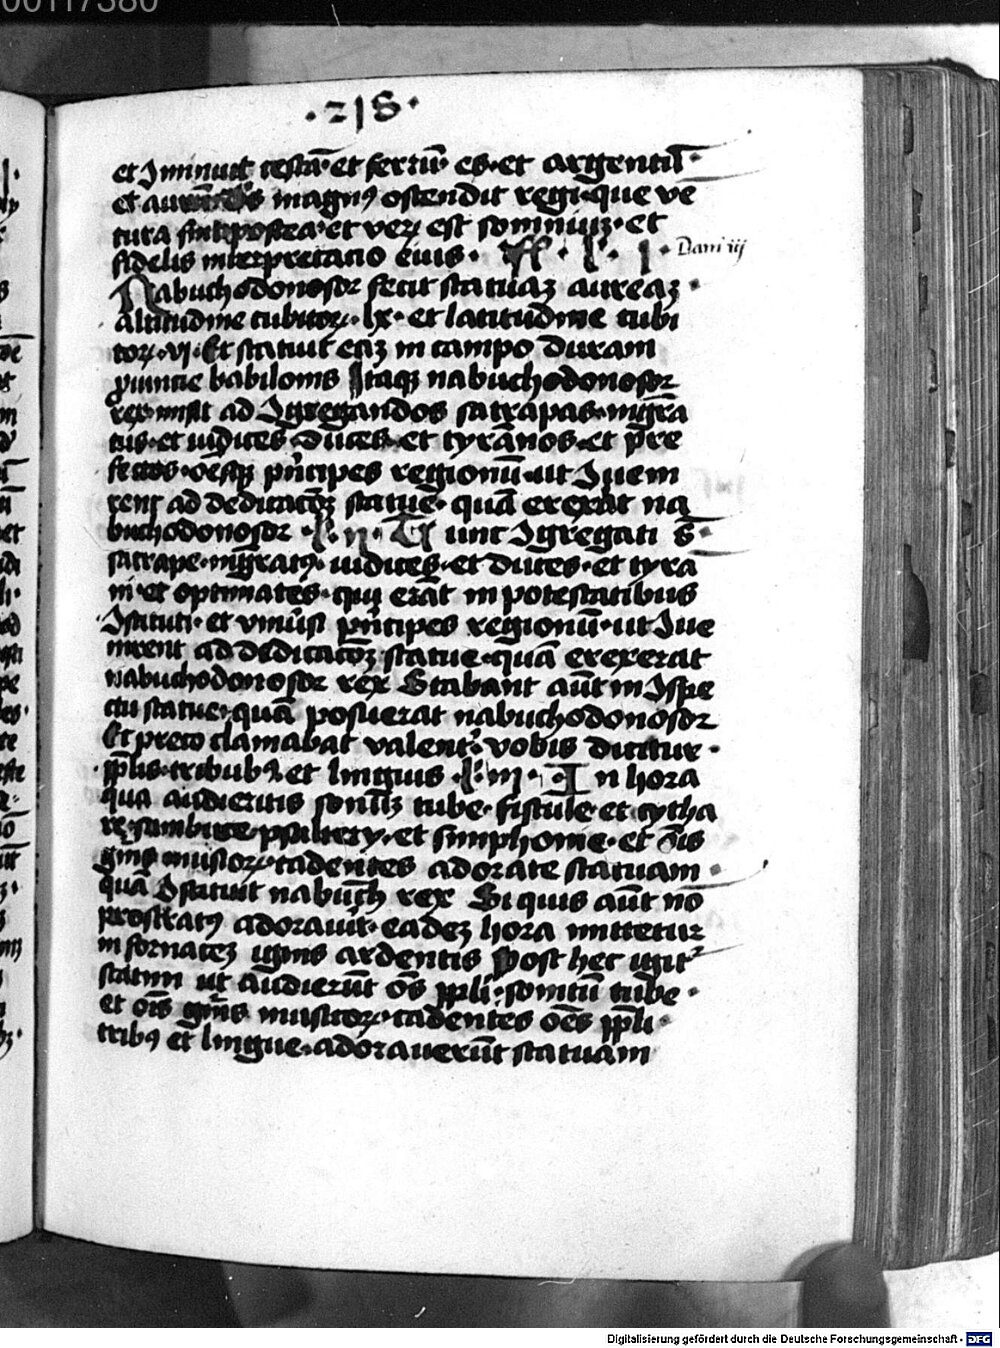 00117380
·218·
et ꝯminuit testā· et ferrū· es· et argentū·
et aurum d's magnꝰ ostendit regi· que ve
tura sint postea· et veꝝ est somniuꝫ· et
fidelis interpretatio eius· ff· l· j· Dani iij
Nabuchodonosor fecit statuaꝫ aureaꝫ·
altitudine cubitoꝝ· lx· et latitudine cubi
toꝝ· vj· Et statuit eaꝫ in campo Duram
ꝓuincie babilonis Itaqꝫ nabuchodonosor
rex misit ad ꝯgregandos satrapas· mgr̄a
tus· et iudices· duces· et tyrānos· et p̄re
fectos· oēsqꝫ pn̄cipes regionū· ut ꝯuem
rent ad dedicacōꝫ statue· quā exerat na
buchodonosor· l· ij· Tūnc ꝯgregati s̄·
satrape· mgr̄atꝰ· iudices· et duces· et tyra
ni· et optimates· qui erāt in potestatibus
ꝯstituti· et vniūsi pn̄cipes regionū· ut ꝯue
nirent ad dedicacōꝫ statue· quā exererat
nabuchodonosor rex Stabant aūt in ꝯspe
ctu statue· quā posuerat nabuchodonosor
Et preco clamabat valent᷑· vobis dicitur·
pp̄lis· tribubꝰ· et linguis· l· iij· In hora
qua audieritis sonitūꝫ tube· fistule· et cytha
re· sambuce· psaltery· et simphonie· et ōis
gn̄is musicoꝝ· cadentes adorate statuam·
quā ꝯstatuit nabuch̄ rex Si quis aūt nō
prostratꝰ adorauit· eadeꝫ hora mittetur
in fornaceꝫ ignis ardentis Post hec igit᷑
statim ut audierūt oēs pp̄li· sonitū tube·
et oīs gn̄is musicoꝝ· cadentes oēs pp̄li·
tribꝰ et lingue· adorauerūt statuam
Digitalisierung gefördert durch die Deutsche Forschungsgemeinschaft · DFG